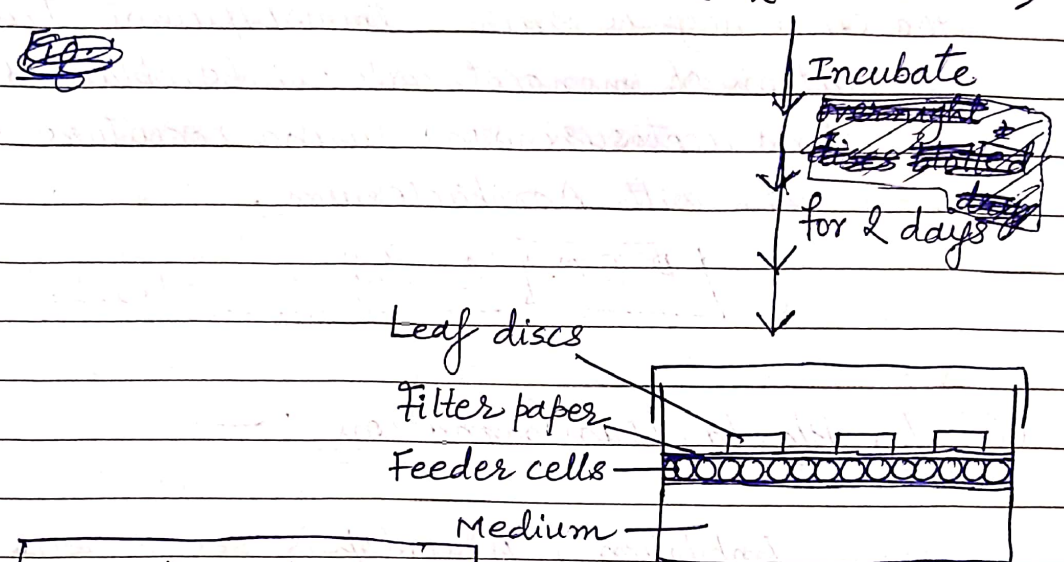 Incubate
for 2 days
Leaf discs
Filter paper
Feeder cells
Medium